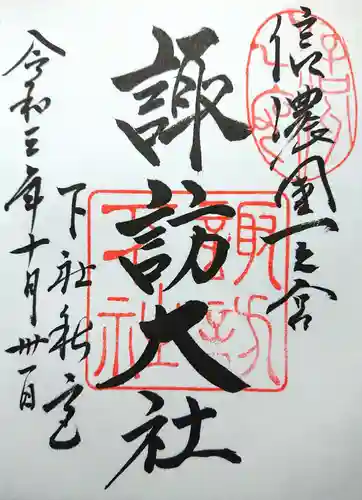 信濃国一之宮
諏訪大社
下社秋宮
令和三年十月卅一日